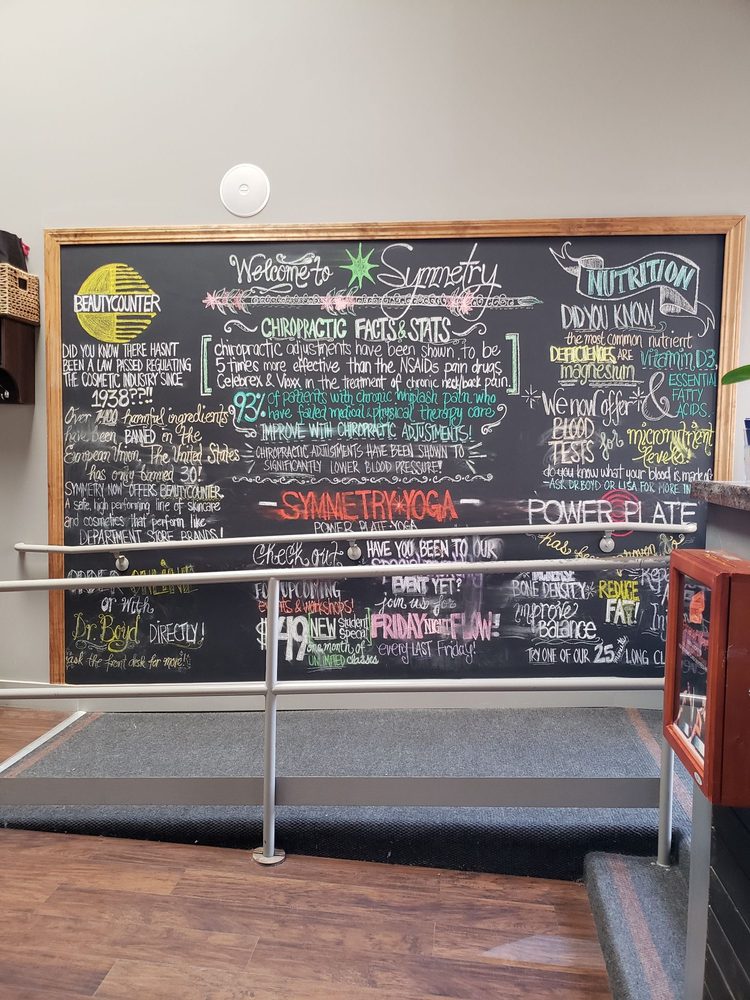 Welcome to Symmetry
BEAUTYCOUNTER
DID YOU KNOW THERE HASN'T
BEEN A LAW PASSED REGULATING
THE COSMETIC INDUSTRY SINCE
1938??!!
Over harmful ingredients
have been BANNED in the
European Union. The United States
has only banned 30!
SYMMETRY NOW OFFERS BEAUTYCOUNTER.
A safe, high performing line of skincare
and cosmetics that perform like
DEPARTMENT STORE BRANDS!
ORDER ONLINE
or with
Dr. Boyd DIRECTLY!
ask the front desk for more!
CHIROPRACTIC FACTS & STATS
chiropractic adjustments have been shown to be
5 times more effective than the NSAIDs pain drugs,
Celebrex & Vioxx in the treatment of chronic neck/back pain.
93% of patients with chronic whiplash pain, who
have failed medical & physical therapy care
IMPROVE WITH CHIROPRACTIC ADJUSTMENTS!
CHIROPRACTIC ADJUSTMENTS HAVE BEEN SHOWN TO
SIGNIFICANTLY LOWER BLOOD PRESSURE!
SYMMETRY YOGA
POWER PLATE YOGA
Check out
FOR UPCOMING
& workshops!
$49 NEW Student Special
one month of
UNLIMITED classes
HAVE YOU BEEN TO OUR
EVENT YET?
join us for
FRIDAY NIGHT FLOW!
every LAST Friday!
NUTRITION
DID YOU KNOW
the most common nutrient
DEFICIENCIES ARE Vitamin D3,
magnesium
& ESSENTIAL
FATTY
ACIDS.
We now offer
BLOOD
TESTS for micronutrient
levels!
do you know what your blood is made
ASK DR BOYD OR LISA FOR MORE IN
POWER PLATE
has
BONE DENSITY
REDUCE
FAT!
improve
Balance
TRY ONE OF OUR 25 minute LONG CL